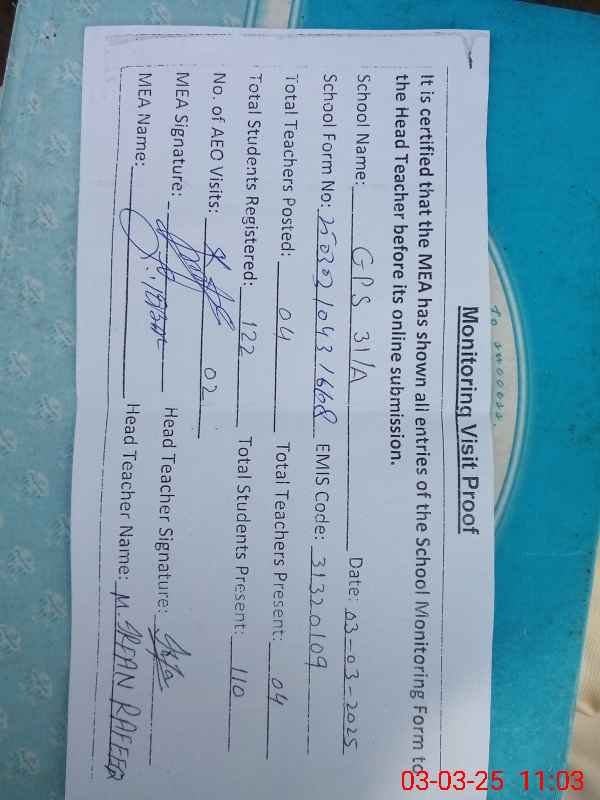 To success.
Monitoring Visit Proof
It is certified that the MEA has shown all entries of the School Monitoring Form to
the Head Teacher before its online submission.
School Name: GPS 31/A Date: 03-03-2025
School Form No: EMIS Code: 31320109
Total Teachers Posted: 04 Total Teachers Present: 04
Total Students Registered: 122 Total Students Present: 110
No. of AEO Visits: 02
MEA Signature: Head Teacher Signature:
MEA Name: Head Teacher Name: M. IRFAN
03-03-25 11:03